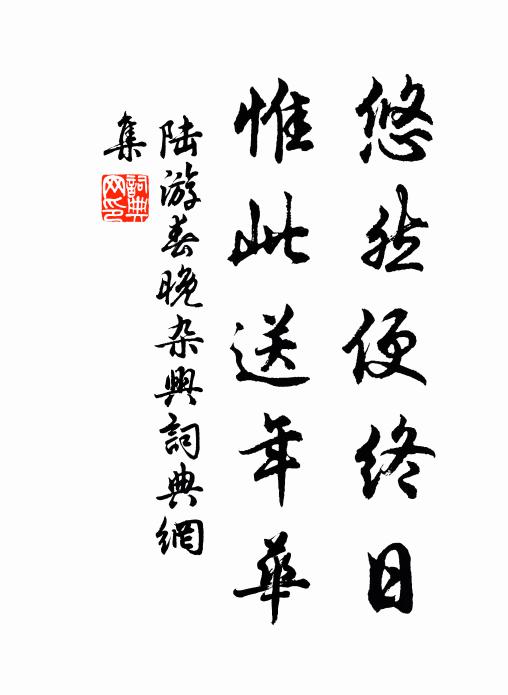 悠然便終日
惟此送年華
陆游春晚杂興詞典網
集
詞典
网印